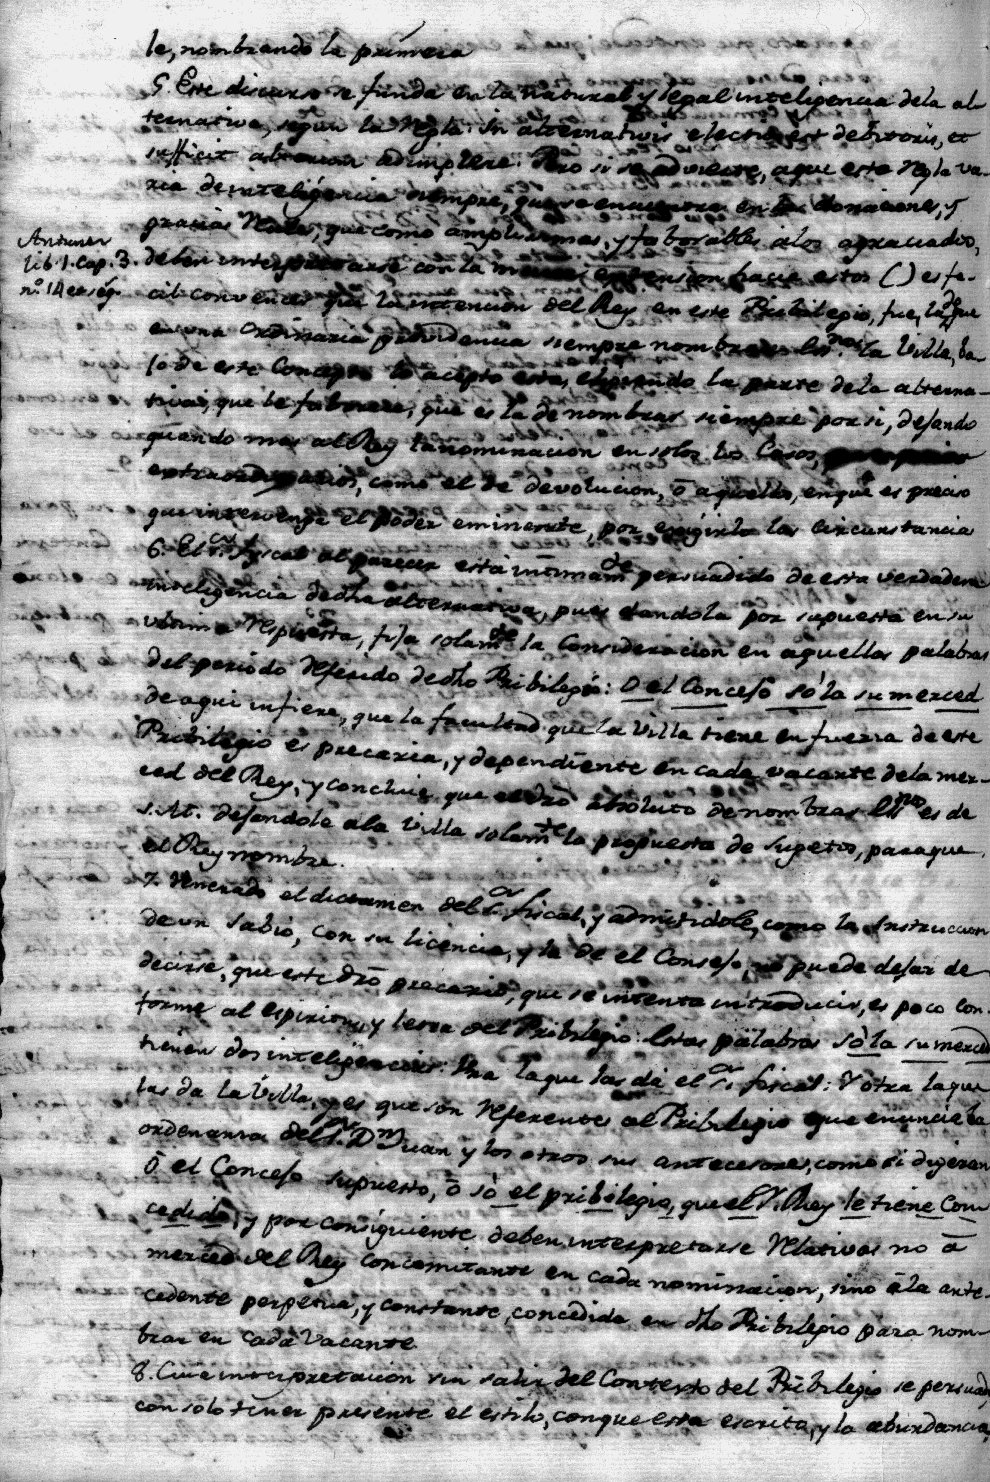 le, nombrando la primera
5. Este discurso se funda en la natural, y legal inteligencia dela al-
ternativa, segun la Regla: In alternativis electio est debitoris, et
sufficit alterum adimplere. Pero si se advierte, aque esta regla va-
ria de inteligencia siempre, que se encuentra en las donaciones, y
gracias Reales, que como amplisimas, y faborables alos agraciados,
Antunez
lib. 1. cap. 3.
nº. 14 et seq.
deben interpretarse con la extension hacia estos ( ) es fa-
cil convencer que la intencion del Rey en este Pribilegio, fue, la de que
en una ordinaria probidencia siempre nombrase Essno. la Villa, ba-
jo de este Concepto lo acepto esta, eligiendo la parte dela alterna-
tiva, que le faborece, que es la de nombrar siempre por si, dejando
quando mas al Rey la nominacion en solos los Casos,
extraordinarios, como el de devolucion, ō aquellos, enque es preciso
que intervenga el poder eminente, por exigirlo las circunstancia
6. El Sr. fiscal al parecer esta intimamte. persuadido de esta verdadera
inteligencia de dha alternativa, pues dandola por supuesta en su
ultima Repuesta, fija solamte. la Consideracion en aquellas palabras
del periodo Referido de dho Pribilegio: O el Concejo só la su merced
de aqui infiere, que la facultad que la Villa tiene en fuerza de este
Pribilegio es precaria, y dependiente en cada vacante dela mer-
ced del Rey, y concluie que el dro absoluto de nombrar Essno es de
S. M. dejandole ala Villa solamte. la propuesta de Sugetos, paraque
el Rey nombre.
7. Venerado el dictamen del Sr. fiscal, y admitidole, como la Instruccion
de un Sabio, con su licencia, y la de el Consejo, no puede dejar de
decirse, que este dro precario, que se intenta introducir, es poco con-
forme al espiritu, y letra del Pribilegio: Estas palabras sò la su merced
tienen dos inteligencias: Una laque las dá el Sr. fiscal: Y otra laque
las da la Villa, y es que son Referentes al Pribilegio que enuncia la
ordenanza del Sr. Dn Juan y los otros sus antecesores, como si digeren
Ō el Concejo supuesto, ō sò el pribilegio, que el S. Rey le tiene Con
cedido, y por consiguiente deben interpretarse Relativas no ā
merced del Rey concomitante en cada nominacion, sino āla ante-
cedente perpetua, y constante, concedida en dho Pribilegio para nom-
brar en cada Vacante
8. Cuia interpretacion sin salir del Contexto del Pribilegio se persuade
con solo tener presente el estilo, conque esta escrito, y la abundancia,